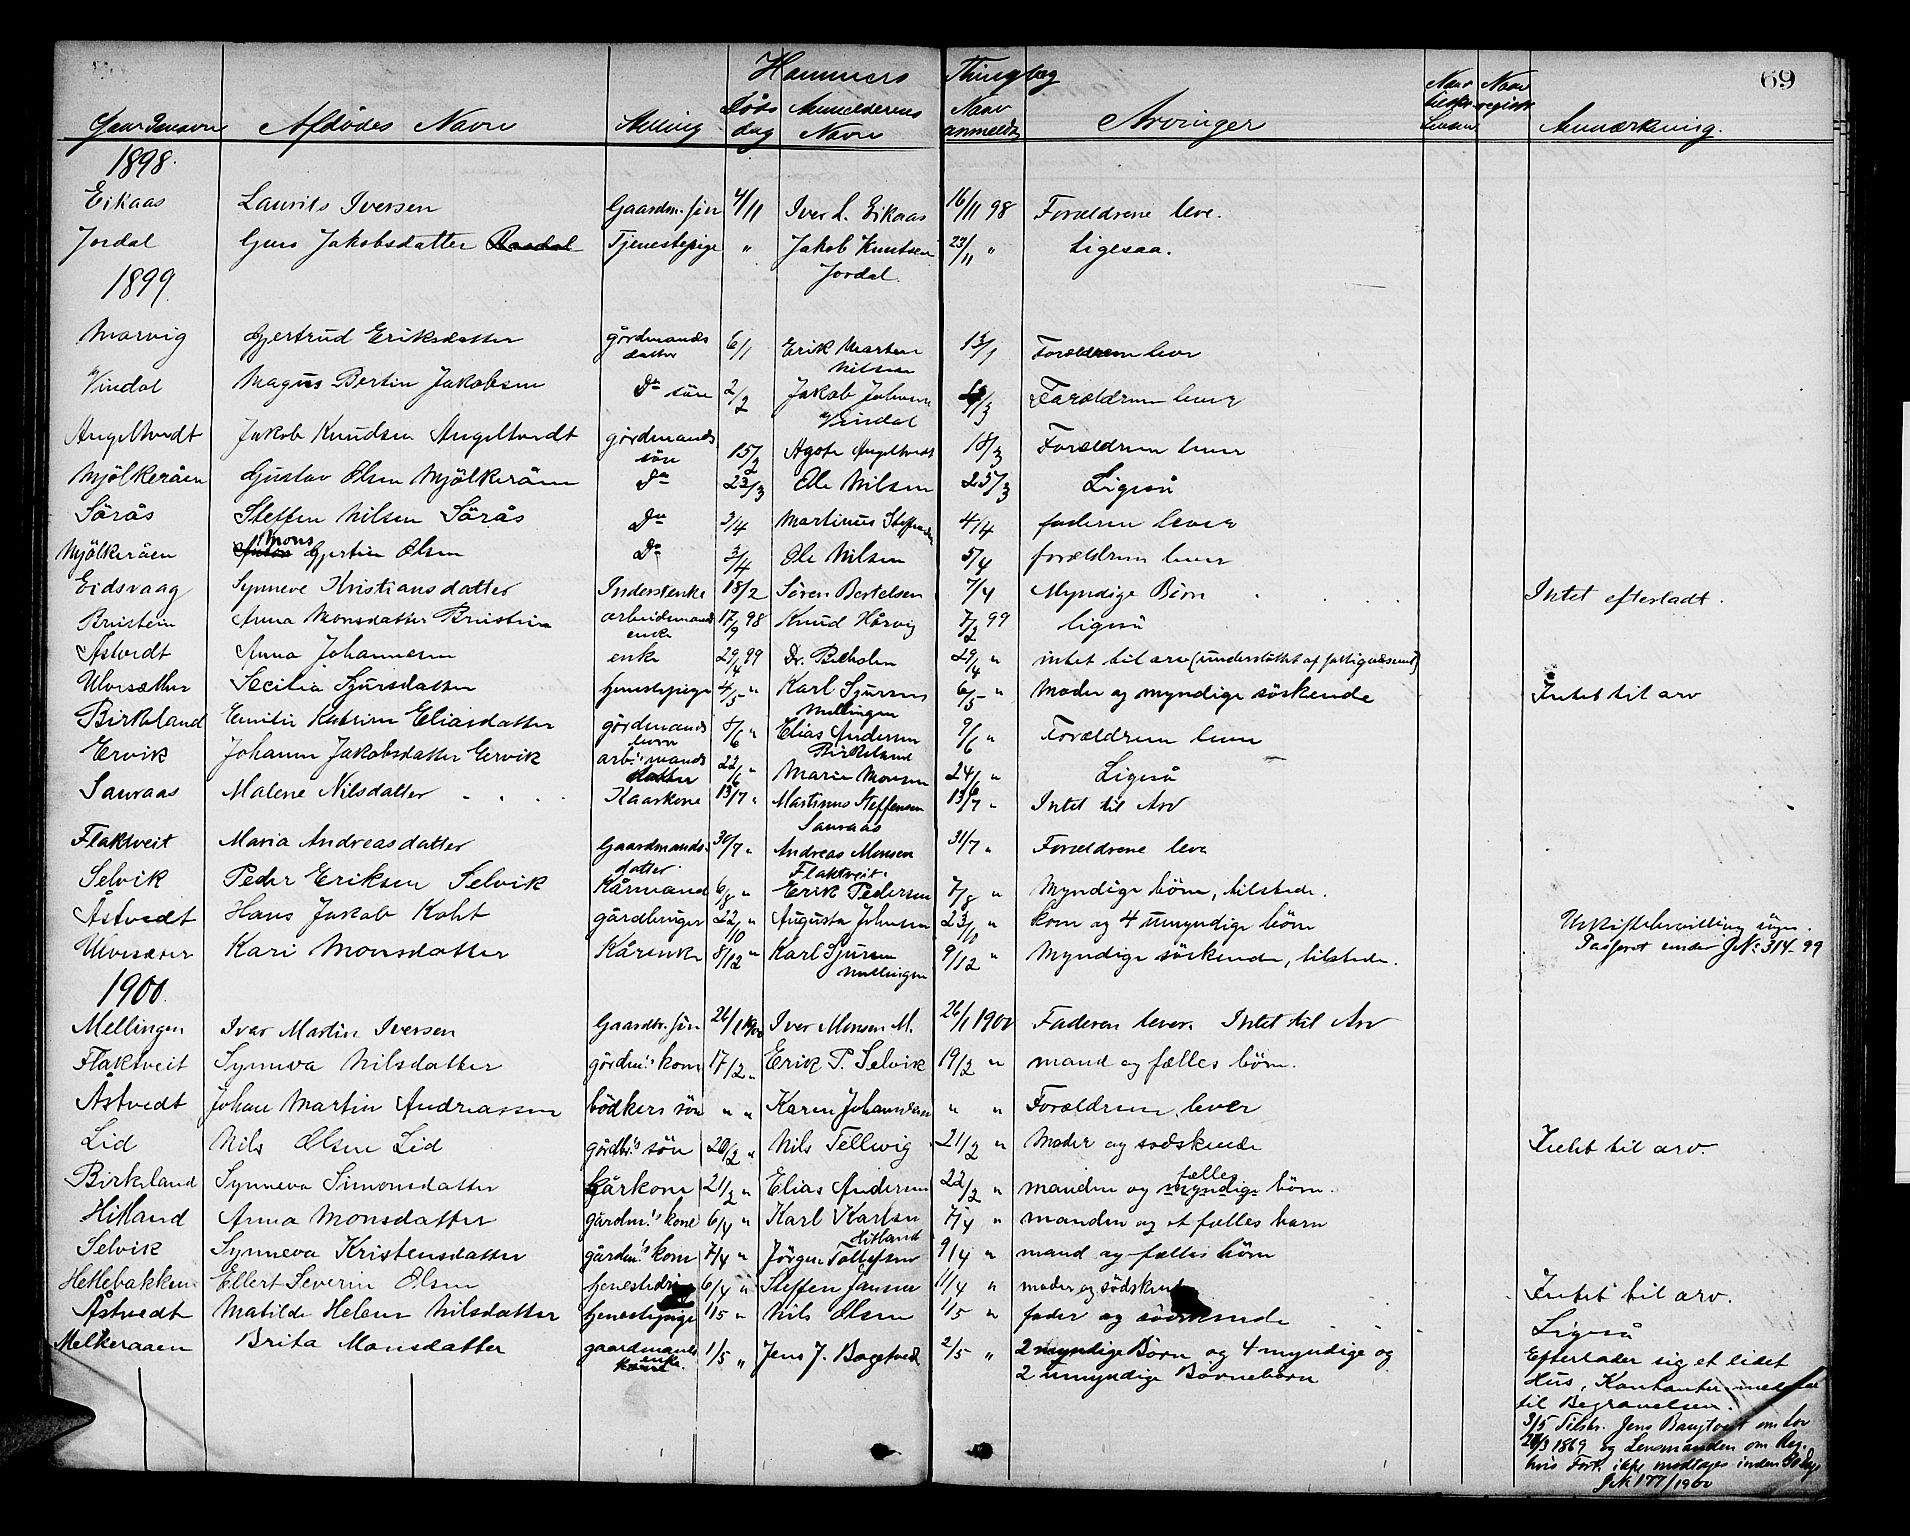 Hammers Thinglag
69
Afdødes Navn Stilling Døds dag Anmelderens Navn Naar anmeldt Arvinger Anmærkning.
1898.
Eikaas Laurits Iversen Gaardm. søn 4/11 Iver L. Eikaas 16/11 98 Forældrene leve.
Jordal Guro Jakobsdatter Tjenestepige " Jakob Knutsen 23/11 " Ligesaa.
Jordal.
1899
Morvig Gjertrud Eriksdatter gårdmands datter 6/1 Erik Martin Nilsen 13/1 Forældrene lever
Vindal Magnus Bertin Jakobsen Do søn 2/2 Jakob Johnsen Vindal /3 Forældrene lever
Angeltvedt Jakob Knudsen Angeltvedt gårdmands søn 15/2 Agote Angeltvedt 18/3 Forældrene lever
Mjölkeråen Gustav Olsen Mjölkeråen Do 23/3 Ole Nilsen 25/3 Ligeså
Sörås Steffen Nilsen Sörås Do 3/4 Martinus Steffensen 4/4 faderen lever
Mjölkeråen Mons Gjertin Olsen Do 3/4 Ole Nilsen 5/4 forældrene lever
Eidsvaag Synneve Kristiansdatter Inderstenke 18/2 Søren Bertelsen 7/4 Myndige Børn Intet efterladt.
Brustein Anna Monsdatter Brustein arbeidsmands enke 17/9 98 Knud Hårvig 7/2 99 ligeså
Åstvedt Anna Johannesen enke 29/4 99 Dr. Bucholm 29/4 " intet til arv (understøttet af fattigvæsenet)
Ulvesæther Secilia Sjursdatter tjenestepige 4/5 " Karl Sjursen Mellingen 6/5 " Moder og myndige söskende Intet til arv
Birkeland Emilie Katrine Eliasdatter gårdmands barn 8/6 " Elias Andersen Birkeland 9/6 " Forældrene lever
Ervik Johanne Jakobsdatter Eervik arb. mands datter 22/6 " Marie Monsen 24/6 " Ligeså
Sauraas Malene Nilsdatter Kaarkone 13/7 " Martinus Steffensen Sauraas 13/7 " Intet til Arv
Flaktveit Maria Andreasdatter Gaardmands datter. 30/7 " Andreas Monsen Flaktveit. 31/7 " Forældrene leve
Selvik Peder Eriksen Selvik Kårmand 6/8 " Erik Pedersen 7/8 " Myndige börn, tilstede.
Åstvedt Hans Jakob Koht gårdbruger 22/10 " Augusta Johnsen 23/10 " kone og 4 umyndige börn Uskiftebevilling søges. Passeret under J.No. 314-99
Ulvesæter Kari Monsdatter Kårenke 8/12 " Karl Sjursen Mellingen 9/12 " Myndige söskende, tilstede.
1900.
Mellingen Ivar Martin Iversen Gaardbr. søn 26/1 1900 Iver Monsen M. 26/1 1900 Faderen lever. Intet til Arv
Flaktveit Synneva Nilsdatter gårdm. kone 17/2 " Erik P. Selvik 19/2 " mand og fælles börn.
Åstvedt Johan Martin Andreassen bödkers sön " " Karen Johannesen " " Forældrene lever
Lid Nils Olsen Lid gårdbr. sön 20/2 " Nils Tellevig 21/2 " Moder og södskende Intet til arv.
Birkeland Synneva Simonsdatter Kårkone 21/2 " Elias Andersen 22/2 " manden og fælles myndige börn.
Hitland Anna Monsdatter gårdm. kone 6/4 " Karl Karlsen Hitland 7/4 " manden og et fælles barn
Selvik Synneva Kristensdatter gårdm. kone 7/4 " Jörgen Tollefsen 9/4 " mand og fælles börn
Hetlebakken Ellert Severin Olsen tjenestedreng 6/4 " Steffen Jansen 11/4 " moder og södskende Intet til arv.
Åstvedt Matilde Helene Nilsdatter tjenestepige 1/5 " Nils Olsen 1/5 " fader og södskende Ligeså
Melkeraaen Brita Monsdatter gaardmands enke. 1/5 " Jens J. Bogetved 2/5 " 2 myndige Børn og 4 myndige og
2 umyndige Børnebörn
Efterlader sig et lidet
Hus, Kontanter medgaar
til Begravelsen.
3/5 Tilskr. Jens Baugtveit om Lov
2/3 1869 og Lensmanden om Reg.
hvis Fork. ikke modtages inden 30 Dage
J.No 177/1900